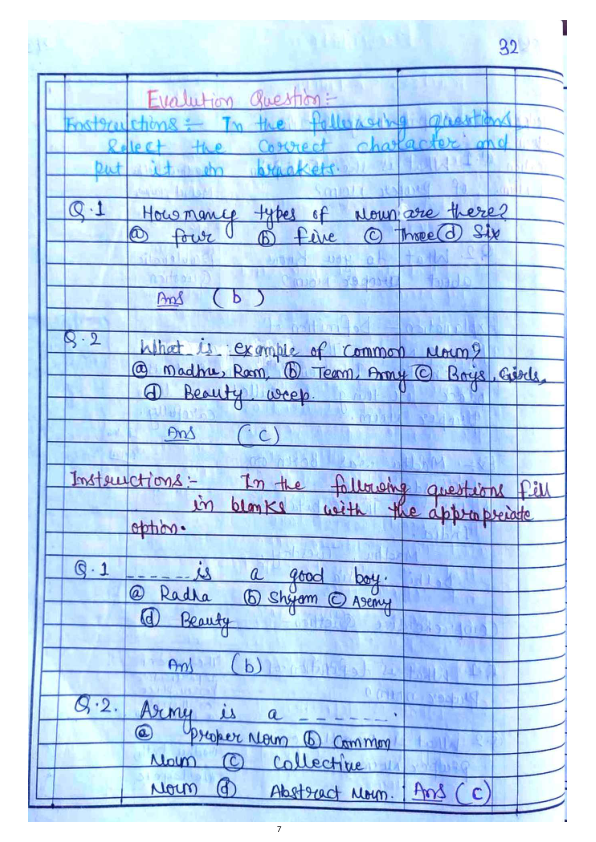 32
Evalution Question:-
Instructions:- In the following questions,
Select the correct character and
put it in brackets.
Q.1 How many types of Noun are there?
(a) four (b) five (c) Three (d) Six
Ans (b)
Q.2 What is example of common Noun?
(a) Madhu, Ram, (b) Team, Army (c) Boys, Girls,
(d) Beauty weep.
Ans (c)
Instructions:- In the following questions fill
in blanks with the appropriate
option.
Q.1 ______is a good boy.
(a) Radha (b) Shyam (c) Army
(d) Beauty
Ans (b)
Q.2. Army is a _______.
(a) proper Noun (b) Common
Noun (c) Collective
Noun (d) Abstract Noun. Ans (c)
7